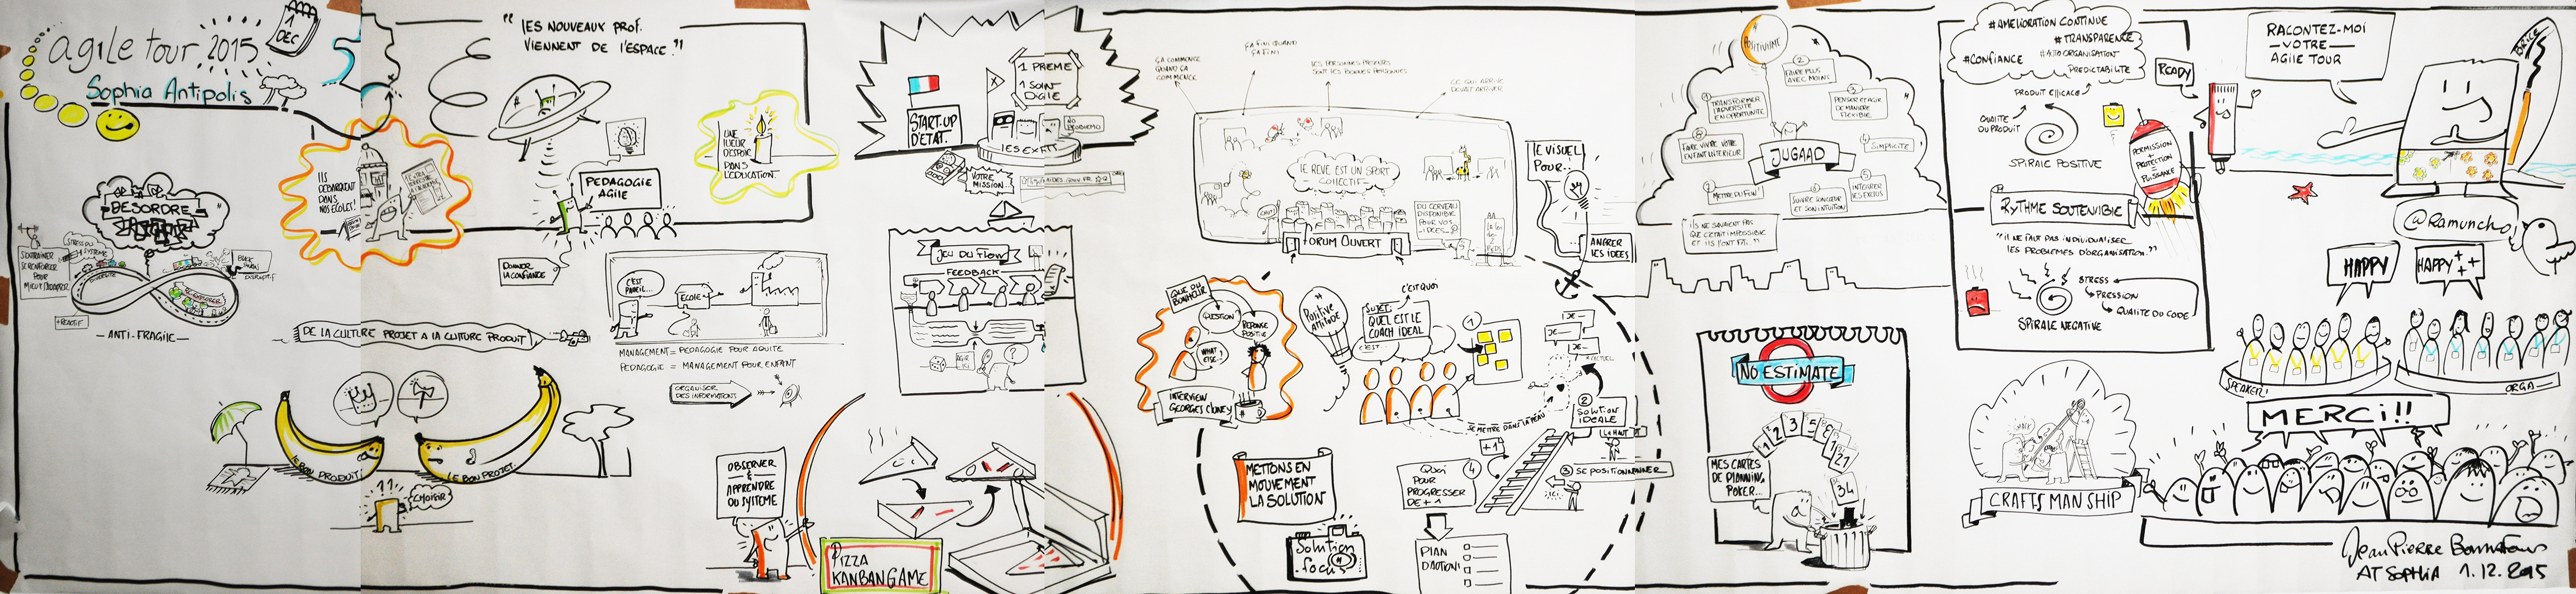 agile tour 2015
Sophia Antipolis
1
DEC
" LES NOUVEAUX PROF.
VIENNENT DE L'ESPACE "
ILS
DEBARQUENT
DANS
NOS ECOLES !
PEDAGOGIE
AGILE
DONNER
LA CONFIANCE
UNE
LUEUR
D'ESPOIR
DANS
L'EDUCATION
DESORDRE
S'ENTRAINER
SE RENFORCER
POUR
MIEUX S'ADAPTER
STRESS DU
SYSTEME
BLACK
SWANS
DISRUPTIF
+ REACTIF
- ANTI-FRAGILE -
C'EST
PAREIL...
ECOLE
MANAGEMENT = PEDAGOGIE POUR ADULTE
PEDAGOGIE = MANAGEMENT POUR ENFANT
ORGANISER
DES INFORMATIONS
DE LA CULTURE PROJET A LA CULTURE PRODUIT
LE BON PRODUIT
LE BON PROJET
CHOISIR
START-UP
D'ETAT.
1 PREME
1 SOIN
DIGILE
NO
PROBLEMO
VOTRE
MISSION...
JEU DU FLOW
FEEDBACK
AGIR
ICI
?
OBSERVER
&
APPRENDRE
DU SYSTEME
PIZZA
KANBAN GAME
ÇA COMMENCE
QUAND ÇA
COMMENCE
ÇA FINI QUAND
ÇA FINI
LES PERSONNES PRESENTES
SONT LES BONNES PERSONNES
CE QUI ARRIVE
DEVAIT ARRIVER
LE REVE EST UN SPORT
COLLECTIF
CHUT!
DU CERVEAU
DISPONIBLE
POUR VOS
IDEES
FORUM OUVERT
LE VISUEL
POUR..!
ANCRER
LES IDEES
QUE DU
BONHEUR
QUESTION?
REPONSE
POSITIVE
WHAT
ELSE?
INTERVIEW
GEORGES CLONEY
Positive
Attitude
SUJET:
QUEL EST LE
COACH IDEAL
C'EST...
c'est quoi
1
SE METTRE DANS LA PEAU
2
SOLUTION
IDEALE
LA HAUT
3 SE POSITIONNER
+1
4
QUOI
POUR
PROGRESSER
DE +1
PLAN
D'ACTION!
METTONS EN
MOUVEMENT
LA SOLUTION
Solution
focus
POSITIVISME
1
TRANSFORMER
L'ADVERSITE
EN OPORTUNITE
2
FAIRE PLUS
AVEC MOINS
3
PENSER ET AGIR
DE MANIERE
FLEXIBLE
4
SIMPLICITE
5
INTEGRER
LES EXCLUS
6
SUIVRE SON COEUR
ET SON INTUITION
METTRE DU FUN!
FAIRE VIVRE VOTRE
ENFANT INTERIEUR
JUGAAD
"ILS NE SAVAIENT PAS
QUE C'ETAIT IMPOSSIBLE
ET ILS L'ONT FAIT. "
NO ESTIMATE
1 2 3 5 8
21
34
MES CARTES
DE PLANNING
POKER...
#AMELIORATION CONTINUE
#TRANSPARENCE
#CONFIANCE
#AUTO ORGANISATION
PREDICTABILITE
PRODUIT EFFICACE
QUALITE
DU PRODUIT
SPIRALE POSITIVE
READY
PERMISSION
+
PROTECTION
=
PUISSANCE
RYTHME SOUTENIBLE
"IL NE FAUT PAS INDIVIDUALISER
LES PROBLEMES D'ORGANISATION."
STRESS
PRESSION
QUALITE DU CODE
SPIRALE NEGATIVE
CRAFTSMANSHIP
RACONTEZ-MOI
- VOTRE -
AGILE TOUR
BRICE
@Ramuncho
HAPPY
HAPPY+++
SPEAKER!
ORGA -
MERCI!!
AT SOPHIA 1.12.2015